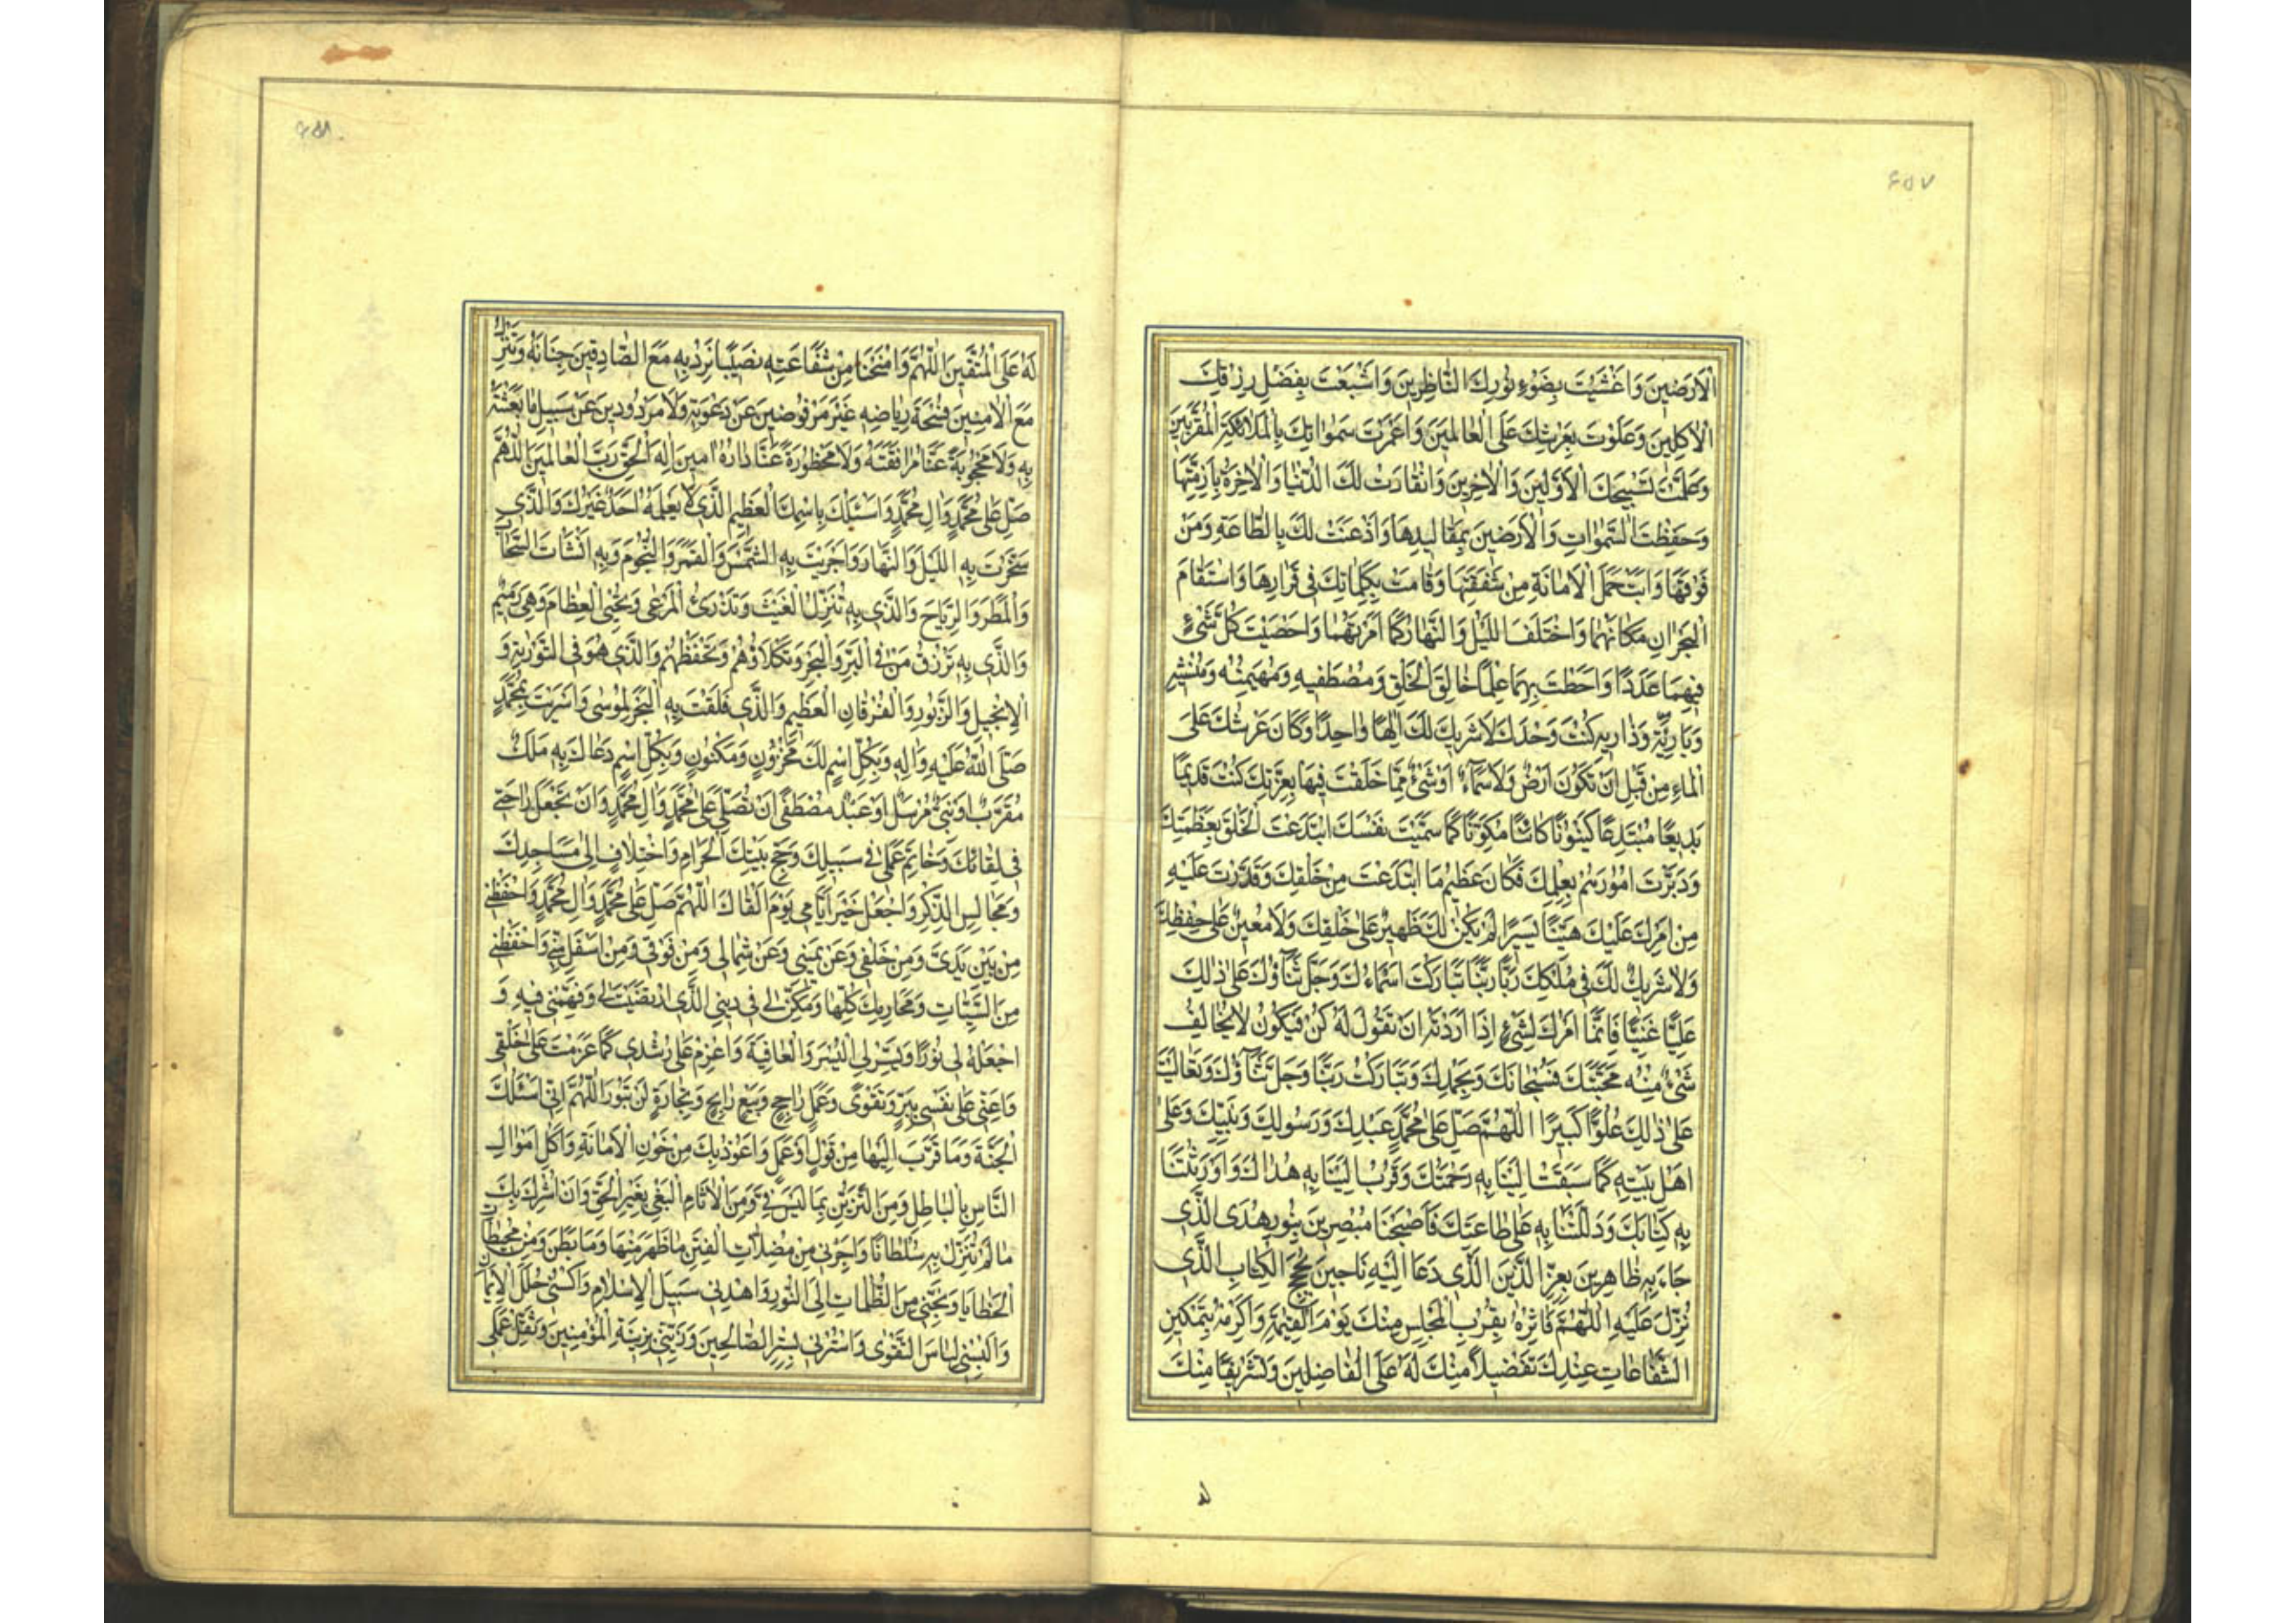 ۶۵۷
الْاَرَضينَ وَاَغْشَيْتَ بِضَوْءِ نُورِكَ النّاظِرينَ وَاَشْبَعْتَ بِفَضْلِ رِزْقِكَ
الْاكِلينَ وَعَلَوْتَ بِعَرْشِكَ عَلَى الْعالَمينَ وَاَعْمَرْتَ سَمواتِكَ بِالْمَلائِكَةِ الْمُقَرَّبينَ
وَعَلَّمْتَ تَسْبيحَكَ الْاَوَّلينَ وَالْاخِرينَ وَانْقادَتْ لَكَ الدُّنْيا وَالْاخِرَةُ بِاَزِمَّتِها
وَحَفِظْتَ السَّمواتِ وَالْاَرَضينَ بِمَقاليدِها وَاَذْعَنَتْ لَكَ بِالطّاعَةِ وَمَنْ
فَوْقَها وَاَبَتْ حَمْلَ الْاَمانَةِ مِنْ شَفَقَتِها وَقامَتْ بِكَلِماتِكَ فى قَرارِها وَاسْتَقامَ
الْبَحْرانِ مَكانَهُما وَاخْتَلَفَ اللَّيْلُ وَالنَّهارُ كَما اَمَرْتَهُما وَاَحْصَيْتَ كُلَّ شَىْءٍ
فيهِما عَدَدًا وَاَحَطْتَ بِهِما عِلْمًا خالِقَ الْخَلْقِ وَمُصْطَفيهِ وَمُهَيْمِنَهُ وَمُنْشِئَهُ
وَبارِئَهُ وَذارِئَهُ كُنْتَ وَحْدَكَ لا شَريكَ لَكَ اِلهًا واحِدًا وَكانَ عَرْشُكَ عَلَى
الْماءِ مِنْ قَبْلِ اَنْ تَكُونَ اَرْضٌ وَلا سَماءٌ اَوْ شَىْءٌ مِمّا خَلَقْتَ فيها بِعِزَّتِكَ كُنْتَ قَديمًا
بَديعًا مُبْتَدِعًا كَيْنُونًا كائِنًا مُكَوِّنًا كَما سَمَّيْتَ نَفْسَكَ ابْتَدَعْتَ الْخَلْقَ بِعَظَمَتِكَ
وَدَبَّرْتَ اُمُورَهُمْ بِعِلْمِكَ فَكانَ عَظيمُ مَا ابْتَدَعْتَ مِنْ خَلْقِكَ وَقَدَّرْتَ عَلَيْهِ
مِنْ اَمْرِكَ عَلَيْكَ هَيِّنًا يَسيرًا لَمْ يَكُنْ لَكَ ظَهيرٌ عَلى خَلْقِكَ وَلا مُعينٌ عَلى حِفْظِكَ
وَلا شَريكٌ لَكَ فى مُلْكِكَ رَبَّنا تَبارَكَتْ اَسْماءُكَ وَجَلَّ ثَناؤُكَ عَلى ذلِكَ
عَلِيًّا غَنِيًّا فَاِنَّما اَمْرُكَ لِشَىْءٍ اِذا اَرَدْتَهُ اَنْ تَقُولَ لَهُ كُنْ فَيَكُونُ لا يُخالِفُ
شَىْءٌ مِنْهُ مَحَبَّتَكَ فَسُبْحانَكَ وَبِحَمْدِكَ وَتَبارَكْتَ رَبَّنا وَجَلَّ ثَناؤُكَ وَتَعالَيْتَ
عَلى ذلِكَ عُلُوًّا كَبيرًا اَللّهُمَّ صَلِّ عَلى مُحَمَّدٍ عَبْدِكَ وَرَسُولِكَ وَنَبِيِّكَ وَعَلى
اَهْلِ بَيْتِهِ كَما سَبَقَتْ اِلَيْنا بِهِ رَحْمَتُكَ وَقَرُبَ اِلَيْنا بِهِ هُداكَ وَاَوْرَثْتَنا
بِهِ كِتابَكَ وَدَلَلْتَنا بِهِ عَلى طاعَتِكَ فَاَصْبَحْنا مُبْصِرينَ بِنُورِ هُدَى الَّذى
جاءَ بِهِ ظاهِرينَ بِعِزِّ الدّينِ الَّذى دَعا اِلَيْهِ ناجينَ بِحُجَجِ الْكِتابِ الَّذى
نُزِّلَ عَلَيْهِ اَللّهُمَّ فَاثِرْهُ بِقُرْبِ الْمَجْلِسِ مِنْكَ يَوْمَ الْقِيمَةِ وَاَكْرِمْهُ بِتَمْكينِ
الشَّفاعاتِ عِنْدَكَ تَفْضيلاً مِنْكَ لَهُ عَلَى الْفاضِلينَ وَتَشْريفًا مِنْكَ
۶۵۸
لَهُ عَلَى الْمُتَّقينَ اَللّهُمَّ وَامْنَحْنا مِنْ شَفاعَتِهِ نَصيبًا نَرِدُ بِهِ مَعَ الصّادِقينَ جِنانَهُ وَنَنْزِلُ
مَعَ الْامِنينَ فُسْحَةَ رِياضِهِ غَيْرَ مَرْفُوضينَ عَنْ دَعْوَتِهِ وَلا مَرْدُودينَ عَنْ سَبيلِ ما بَعَثْتَهُ
بِهِ وَلا مَحْجُوبَةً عَنّا مُرافَقَتُهُ وَلا مَحْظُورَةً عَنّا دارُهُ امينَ اِلهَ الْحَقِّ رَبَّ الْعالَمينَ اَللّهُمَّ
صَلِّ عَلى مُحَمَّدٍ وَالِ مُحَمَّدٍ وَاَسْئَلُكَ بِاسْمِكَ الْعَظيمِ الَّذى لا يَعْلَمُهُ اَحَدٌ غَيْرُكَ وَالَّذى
سَخَّرْتَ بِهِ اللَّيْلَ وَالنَّهارَ وَاَجْرَيْتَ بِهِ الشَّمْسَ وَالْقَمَرَ وَالنُّجُومَ وَبِهِ اَنْشَأْتَ السَّحابَ
وَالْمَطَرَ وَالرِّياحَ وَالَّذى بِهِ تُنْزِلُ الْغَيْثَ وَتَذْرَءُ الْمَرْعى وَتُحْيِى الْعِظامَ وَهِىَ رَميمٌ
وَالَّذى بِهِ تَرْزُقُ مَنْ فِى الْبَرِّ وَالْبَحْرِ وَتَكْلَاؤُهُمْ وَتَحْفَظُهُمْ وَالَّذى هُوَ فِى التَّوْرايةِ وَ
الْاِنْجيلِ وَالزَّبُورِ وَالْفُرْقانِ الْعَظيمِ وَالَّذى فَلَقْتَ بِهِ الْبَحْرَ لِمُوسى وَاَسْرَيْتَ بِمُحَمَّدٍ
صَلَّى اللّهُ عَلَيْهِ وَالِهِ وَبِكُلِّ اسْمٍ لَكَ مَخْزُونٍ وَمَكْنُونٍ وَبِكُلِّ اسْمٍ دَعاكَ بِهِ مَلَكٌ
مُقَرَّبٌ اَوْ نَبِىٌّ مُرْسَلٌ اَوْ عَبْدٌ مُصْطَفًى اَنْ تُصَلِّىَ عَلى مُحَمَّدٍ وَالِ مُحَمَّدٍ وَاَنْ تَجْعَلَ راحَتى
فى لِقائِكَ وَخاتِمَ عَمَلى فى سَبيلِكَ وَحَجِّ بَيْتِكَ الْحَرامِ وَاخْتِلافٍ اِلى مَساجِدِكَ
وَمَجالِسِ الذِّكْرِ وَاجْعَلْ خَيْرَ اَيّامى يَوْمَ اَلْقاكَ اَللّهُمَّ صَلِّ عَلى مُحَمَّدٍ وَالِ مُحَمَّدٍ وَاحْفَظْنى
مِنْ بَيْنِ يَدَىَّ وَمِنْ خَلْفى وَعَنْ يَمينى وَعَنْ شِمالى وَمِنْ فَوْقى وَمِنْ اَسْفَلَ مِنّى وَاحْفَظْنى
مِنَ السَّيِّئاتِ وَمَحارِمِكَ كُلِّها وَمَكِّنْ لى فى دينِى الَّذِى ارْتَضَيْتَ لى وَفَهِّمْنى فيهِ وَ
اجْعَلْهُ لى نُورًا وَيَسِّرْ لِىَ الْيُسْرَ وَالْعافِيَةَ وَاعْزِمْ عَلى رُشْدى كَما عَزَمْتَ عَلى خَلْقى
وَاَعِنّى عَلى نَفْسى بِبِرٍّ وَتَقْوًى وَعَمَلٍ راجِحٍ وَبَيْعٍ رابِحٍ وَتِجارَةٍ لَنْ تَبُورَ اَللّهُمَّ اِنّى اَسْئَلُكَ
الْجَنَّةَ وَما قَرَّبَ اِلَيْها مِنْ قَوْلٍ اَوْ عَمَلٍ وَاَعُوذُ بِكَ مِنْ خَوْنِ الْاَمانَةِ وَاَكْلِ اَمْوالِ
النّاسِ بِالْباطِلِ وَمِنَ التَّزَيُّنِ بِما لَيْسَ فِىَّ وَمِنَ الْاثامِ الْبَغْىِ بِغَيْرِ الْحَقِّ وَاَنْ اُشْرِكَ بِكَ
ما لَمْ تُنَزِّلْ بِهِ سُلْطانًا وَاَجِرْنى مِنْ مُضِلّاتِ الْفِتَنِ ما ظَهَرَ مِنْها وَما بَطَنَ وَمِنْ مُحيطاتِ
الْخَطايا وَنَجِّنى مِنَ الظُّلُماتِ اِلَى النُّورِ وَاهْدِنى سَبيلَ الْاِسْلامِ وَاكْسُنى حُلَلَ الْاِيمانِ
وَاَلْبِسْنى لِباسَ التَّقْوى وَاسْتُرْنى بِسِتْرِ الصّالِحينَ وَزَيِّنّى بِزينَةِ الْمُؤْمِنينَ وَثَقِّلْ عَمَلى